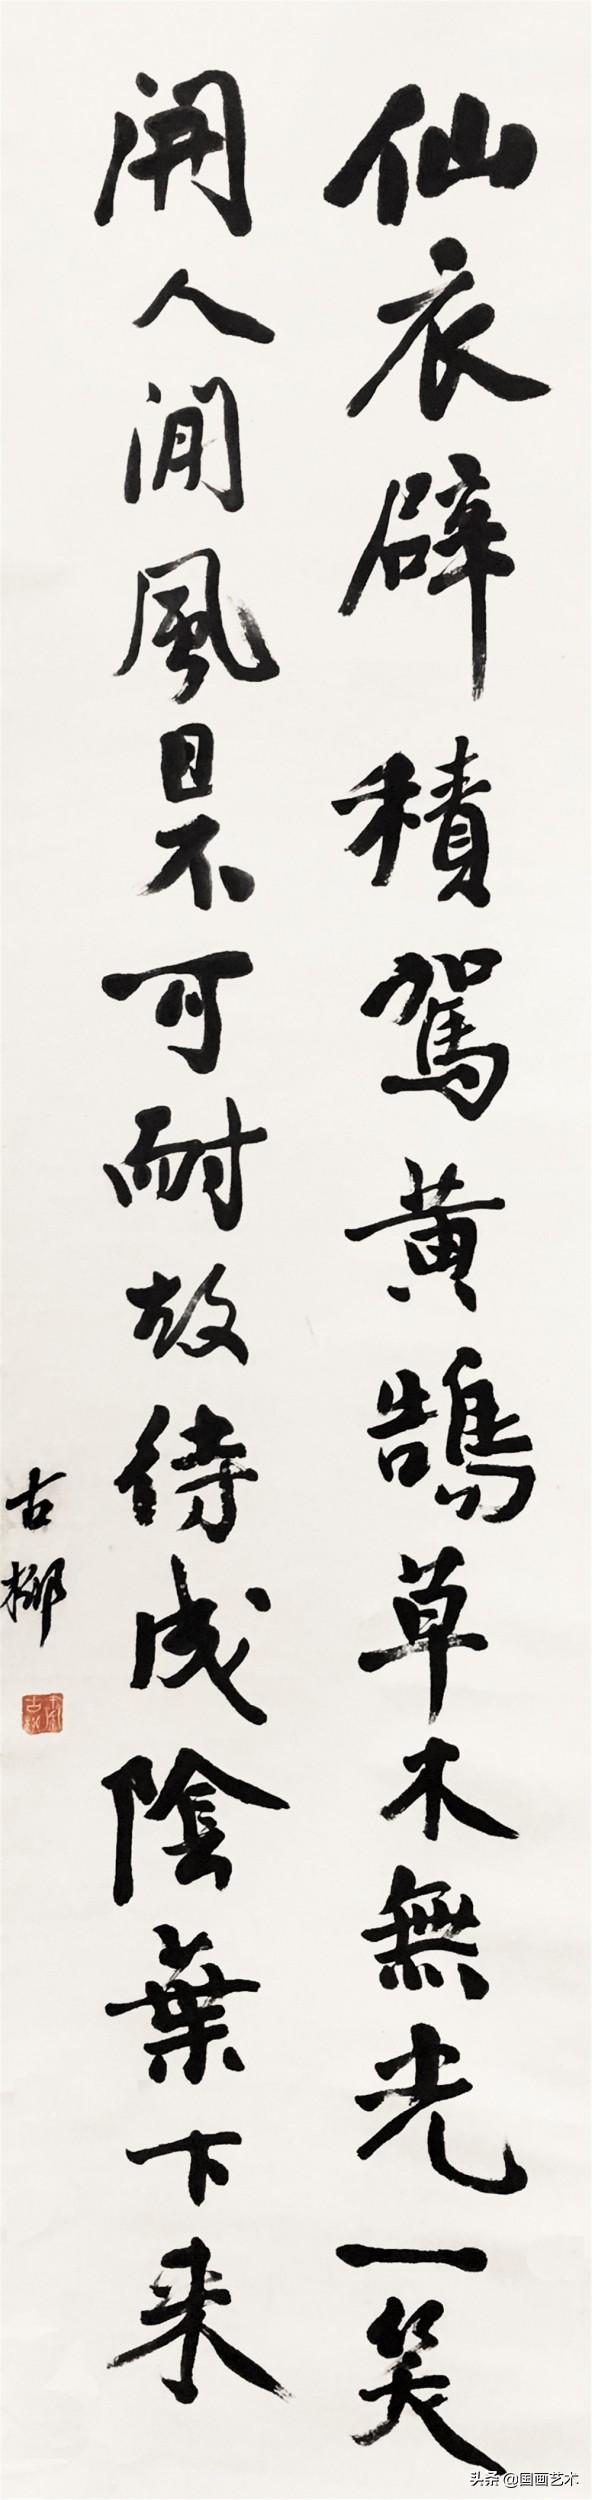 仙衣襞積駕黃鵠草木無光一笑
開人間風日不可耐故待成陰葉下来
古柳
头条 @国画艺术